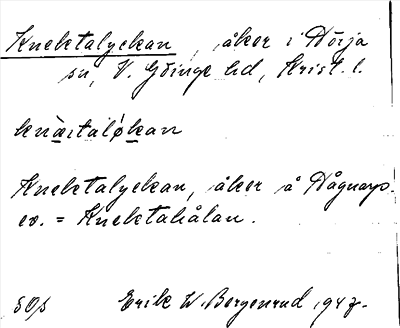 Knektalyckan, åker i Hörja
sn, V. Göinge hd, Krist. l.
knæ̀ktaló̀kan
Knektalyckan, åker å
ev. = Knektahålan.
Erik W. Bergenrud, 1947.